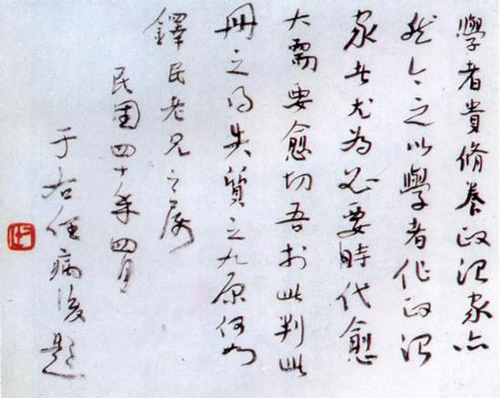 學者貴脩養政治家亦
然今之以學者作政治
家者尤為必要時代愈
大需要愈切吾扵此判此
冊之得失質之九原何如
鐸民老兄之屬
民國四十年四月
于右任病後題